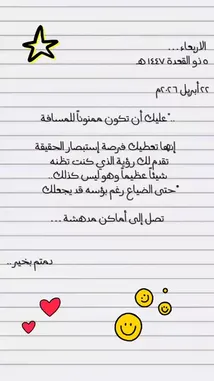 الاربعاء ...
٥ ذو القعدة ١٤٤٧ هـ
٢٢ أبريل ٢٠٢٦م
.."عليك أن تكون ممنوناً للمسافة
إنها تعطيك فرصة إستبصار الحقيقة
تقدم لك رؤية الذي كنت تظنه
شيئاً عظيماً وهو ليس كذلك..
"حتى الضياع رغم بؤسه قد يجعلك
تصل إلى أماكن مدهشة ...
دمتم بخير..